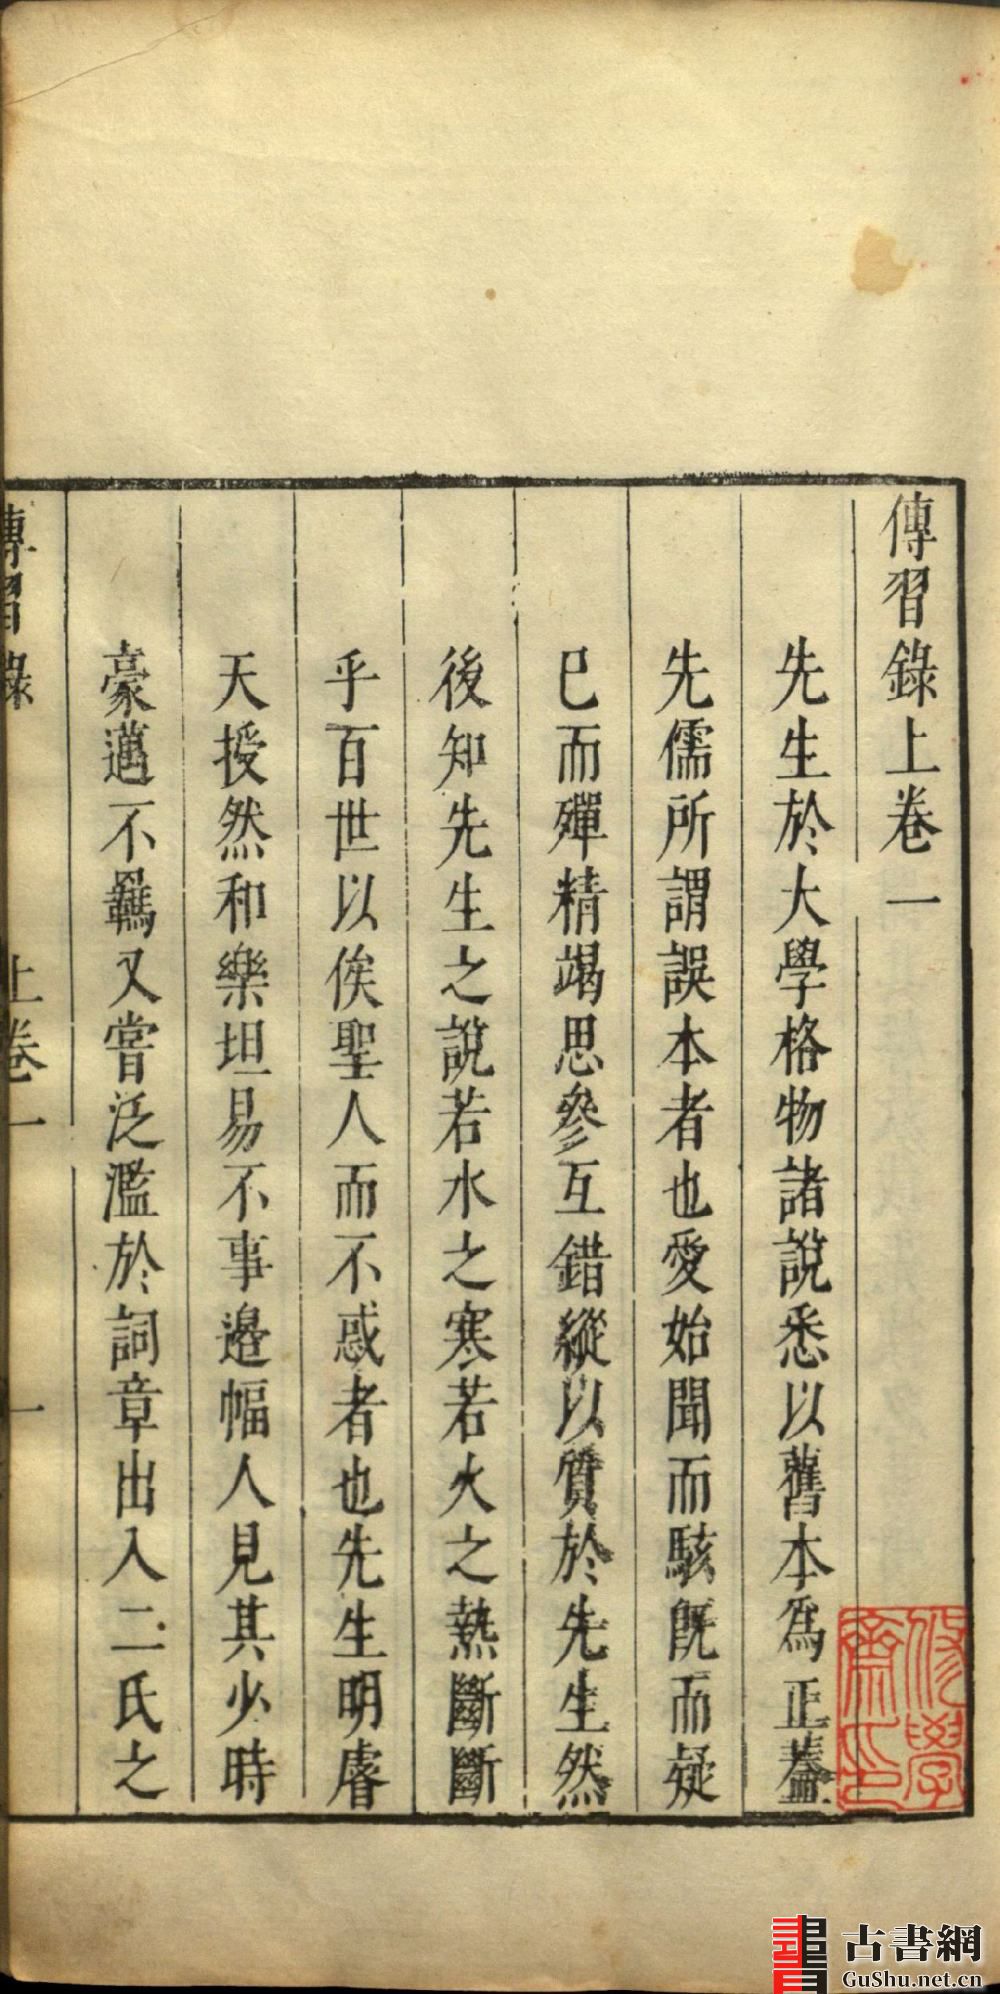 傳習錄上卷一
先生於大學格物諸說悉以舊本爲正葢
先儒所謂誤本者也愛始聞而駭旣而疑
已而殫精竭思參互錯縱以質於先生然
後知先生之說若水之寒若火之熱斷斷
乎百世以俟聖人而不惑者也先生明睿
天授然和樂坦易不事邊幅人見其少時
豪邁不羈又嘗泛濫於詞章出入二氏之
傳習錄 上卷一 一
修學齋印
古書網
GuShu.net.cn